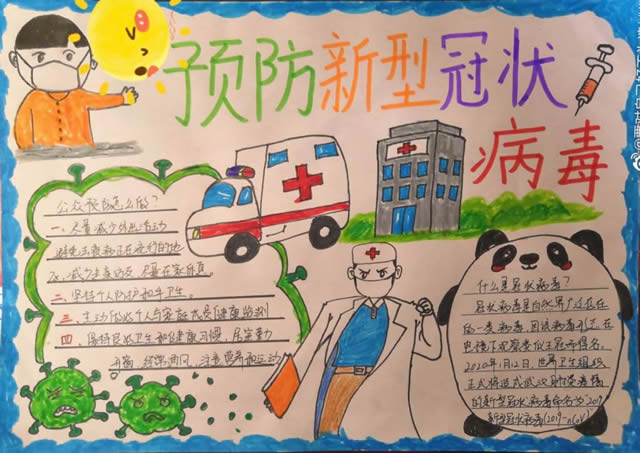 预防新型冠状
病毒
公众预防怎么做?
一、尽量减少外出活动
避免去疾病正在流行的地
区,减少走亲访友,尽量在家休息
二、坚持个人防护和手卫生。
三、主动做好个人与家庭成员健康监测
四、保持良好卫生和健康习惯,居室勤
开窗,经常通风,注意营养和运动
什么是冠状病毒?
冠状病毒是自然界广泛存在
的一类病毒,因该病毒形态在
电镜下观察类似王冠而得名。
2020年1月12日,世界卫生组织
正式将造成武汉肺炎疫情
的新型冠状病毒命名为"2019
新型冠状病毒(2019-nCoV)